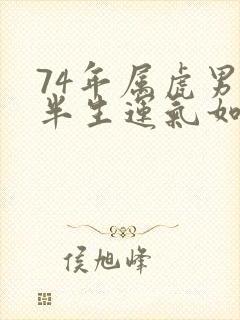 74年属虎男
半生运气如
侯旭峰